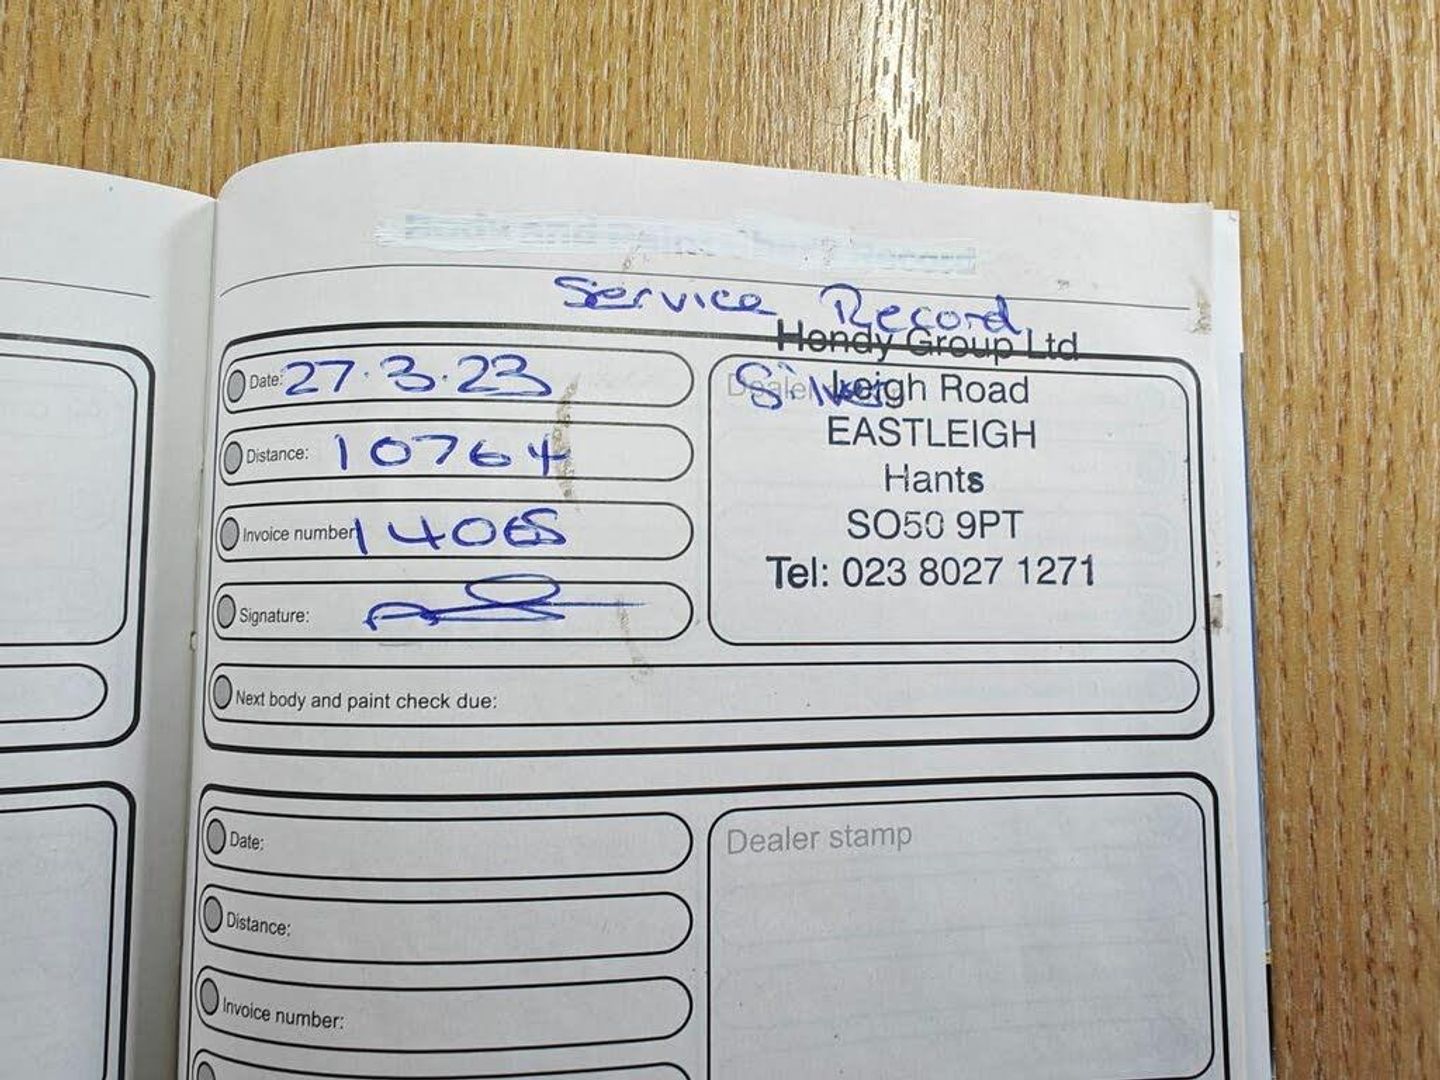 Service Record
Hendy Group Ltd
Date: 27.3.23
Silver
Leigh Road
EASTLEIGH
Distance: 10764
Hants
SO50 9PT
Invoice number
Tel: 023 8027 1271
Signature:
Next body and paint check due:
Date:
Dealer stamp
Distance:
Invoice number: